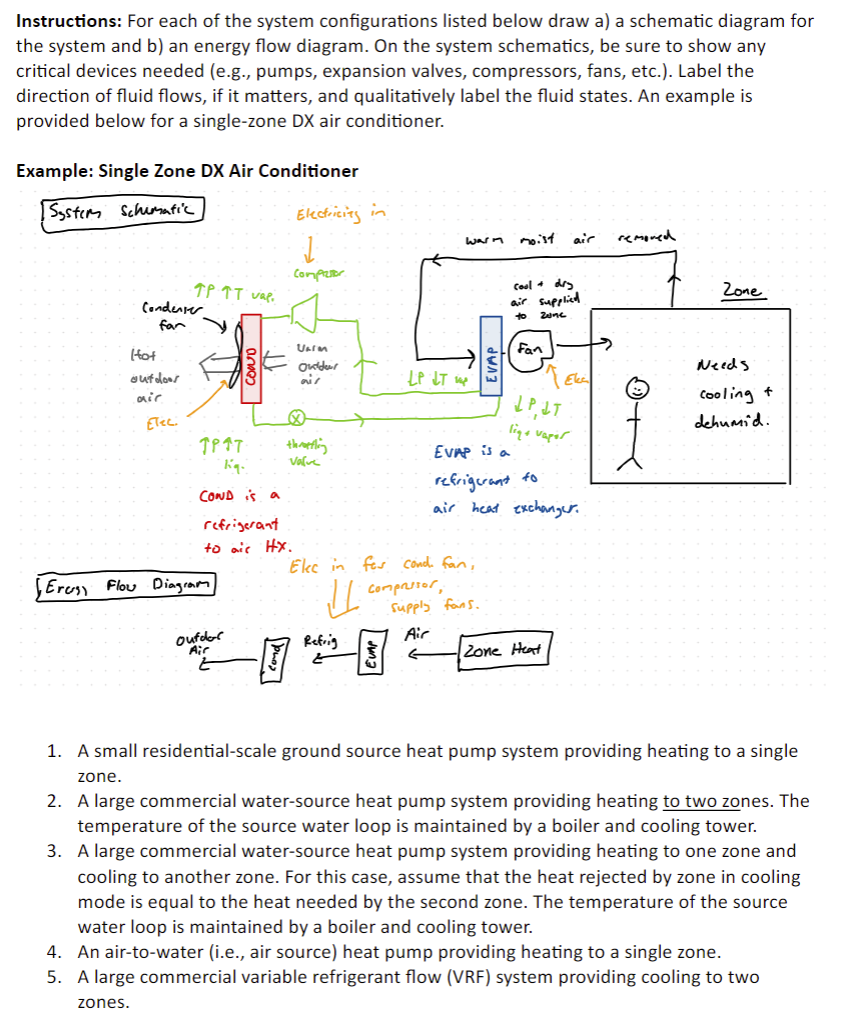 Instructions: For each of the system configurations listed below draw a) a schematic diagram for
the system and b) an energy flow diagram. On the system schematics, be sure to show any
critical devices needed (e.g., pumps, expansion valves, compressors, fans, etc.). Label the
direction of fluid flows, if it matters, and qualitatively label the fluid states. An example is
provided below for a single-zone DX air conditioner.
Example: Single Zone DX Air Conditioner
System Schematic
Electricity in
warm moist air removed
Compressor
cool + dry
air supplied
to zone
Zone
↑P ↑T vap.
Condenser
fan
Hot
outdoor
air
COND
Warm
Outdoor
air
↓P ↓T vap
EVAP
Fan
Elec
Needs
cooling +
dehumid.
Elec.
↓P, ↓T
liq + vapor
↑P↑T
liq.
throttling
valve
EVAP is a
refrigerant to
air heat exchanger.
COND is a
refrigerant
to air HX.
Elec in for cond. fan,
compressor,
supply fans.
Energy Flow Diagram
Outdoor
Air
Cond
Refrig
Evap
Air
Zone Heat
1. A small residential-scale ground source heat pump system providing heating to a single
zone.
2. A large commercial water-source heat pump system providing heating to two zones. The
temperature of the source water loop is maintained by a boiler and cooling tower.
3. A large commercial water-source heat pump system providing heating to one zone and
cooling to another zone. For this case, assume that the heat rejected by zone in cooling
mode is equal to the heat needed by the second zone. The temperature of the source
water loop is maintained by a boiler and cooling tower.
4. An air-to-water (i.e., air source) heat pump providing heating to a single zone.
5. A large commercial variable refrigerant flow (VRF) system providing cooling to two
zones.